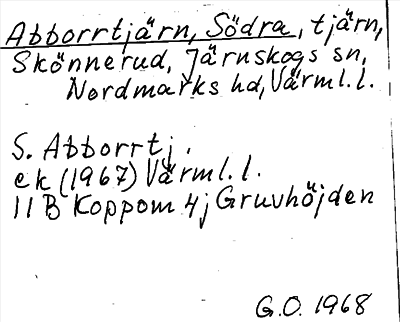 Abborrtjärn, Södra, tjärn,
Skönnerud, Järnskogs sn,
Nordmarks hd, Värml.l.
S. Abborrtj.
ek (1967) Värml.l.
11 B Koppom 4j Gruvhöjden
G.O. 1968